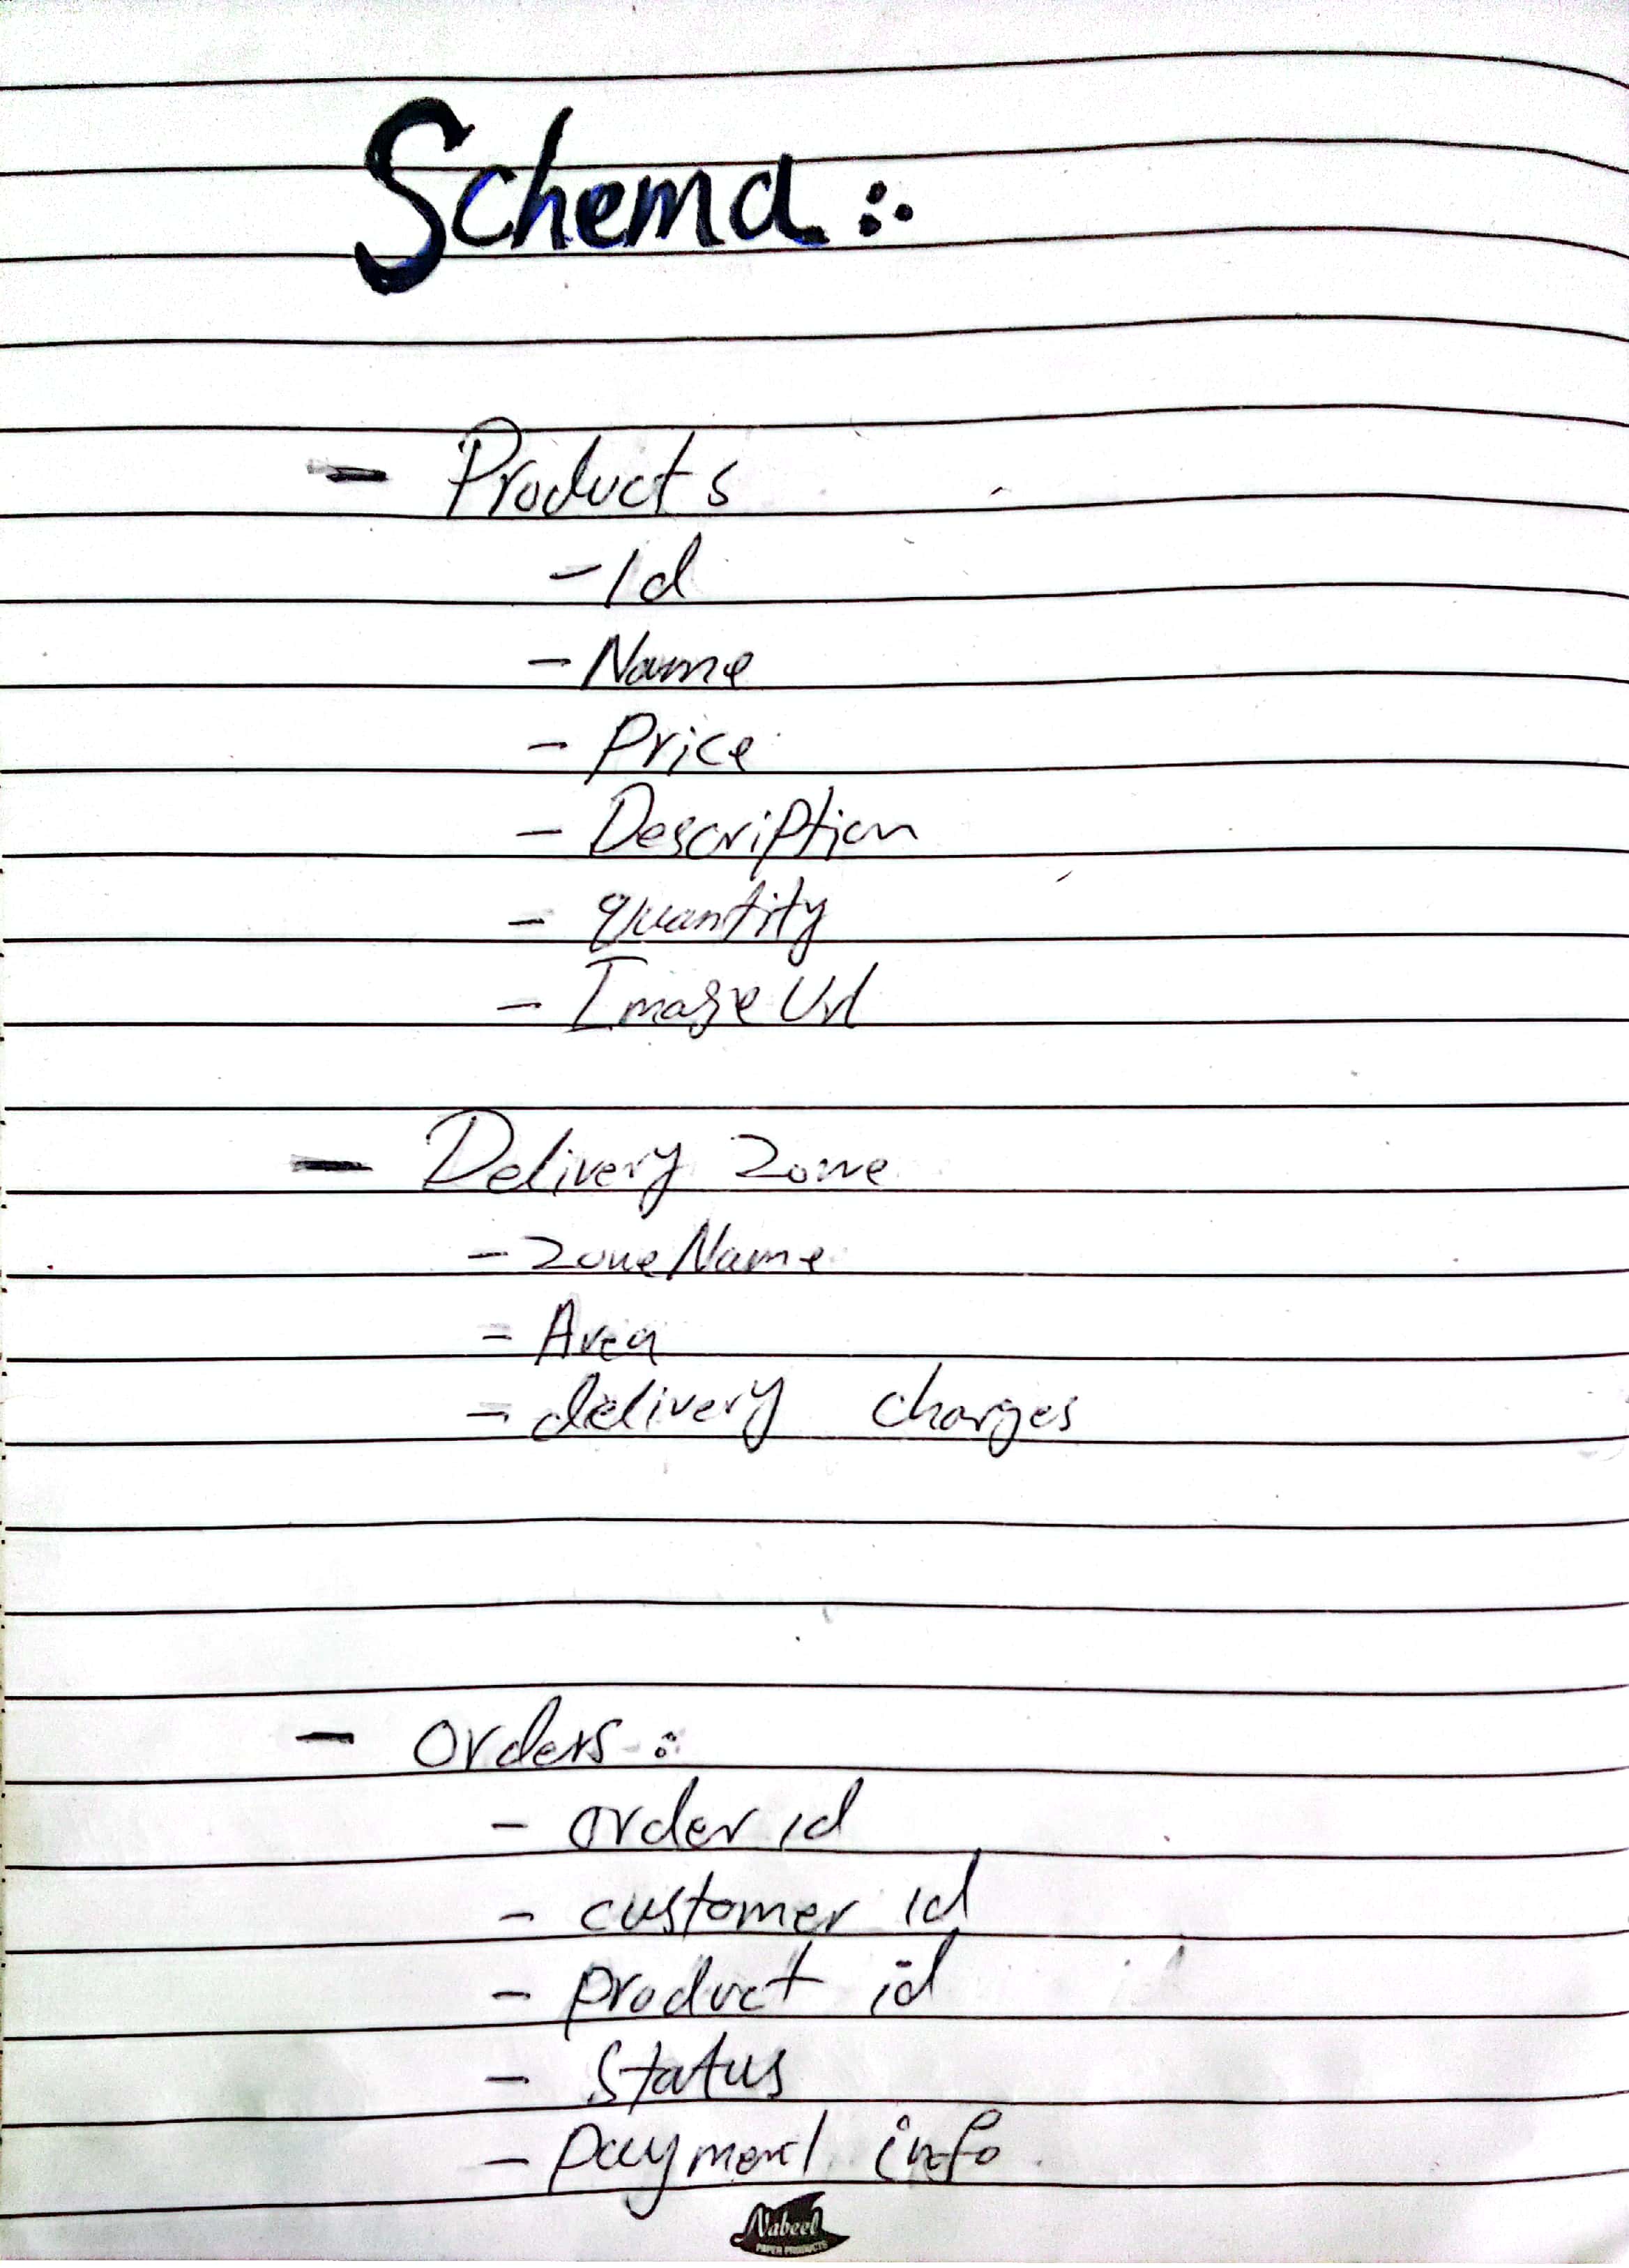 Schema :.
- Products
- Id
- Name
- Price
- Description
- quantity
- Image Url
- Delivery Zone
- ZoneName
- Area
- delivery charges
- Orders :
- order id
- customer id
- product id
- Status
- payment info
Nabeel
PAPER PRODUCTS